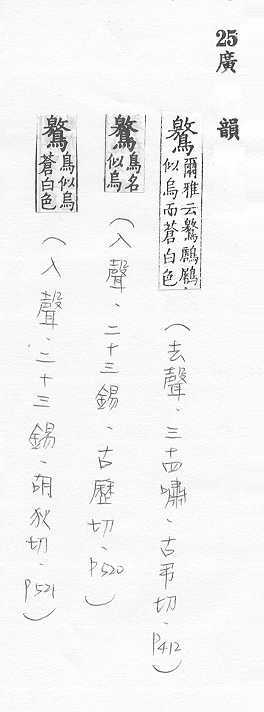 25廣韻
鷩爾雅云鷩鶶鷵似烏而蒼白色(去聲、三十四嘯、古弔切、P412)
鷩鳥名似烏(入聲、二十三錫、古歷切、P520)
鷩鳥似烏蒼白色(入聲、二十三錫、胡狄切、P521)